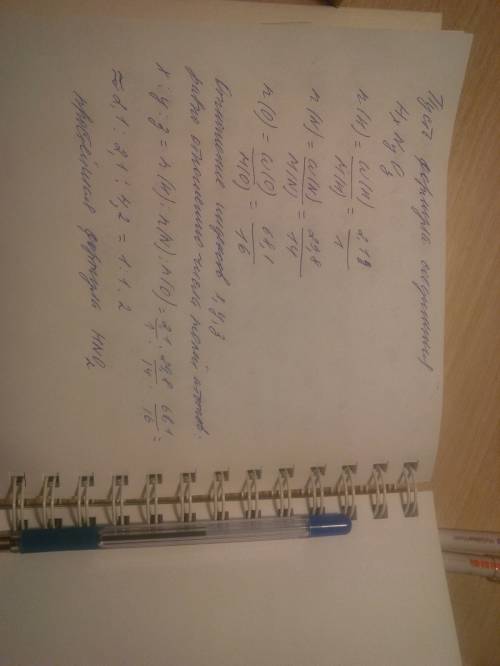 Пусть формула соединения
HxNyOz
n(H) = ω(H)/M(H) = 2.1/1
n(N) = ω(N)/M(N) = 29,8/14
n(O) = ω(O)/M(O) = 68,1/16
Отношение индексов x, y, z
равно отношению чисел молей атомов:
x : y : z = n(H) : n(N) : n(O) = 2,1/1 : 29,8/14 : 68,1/16 =
2,1 : 2,1 : 4,2 = 1 : 1 : 2
формула HNO2